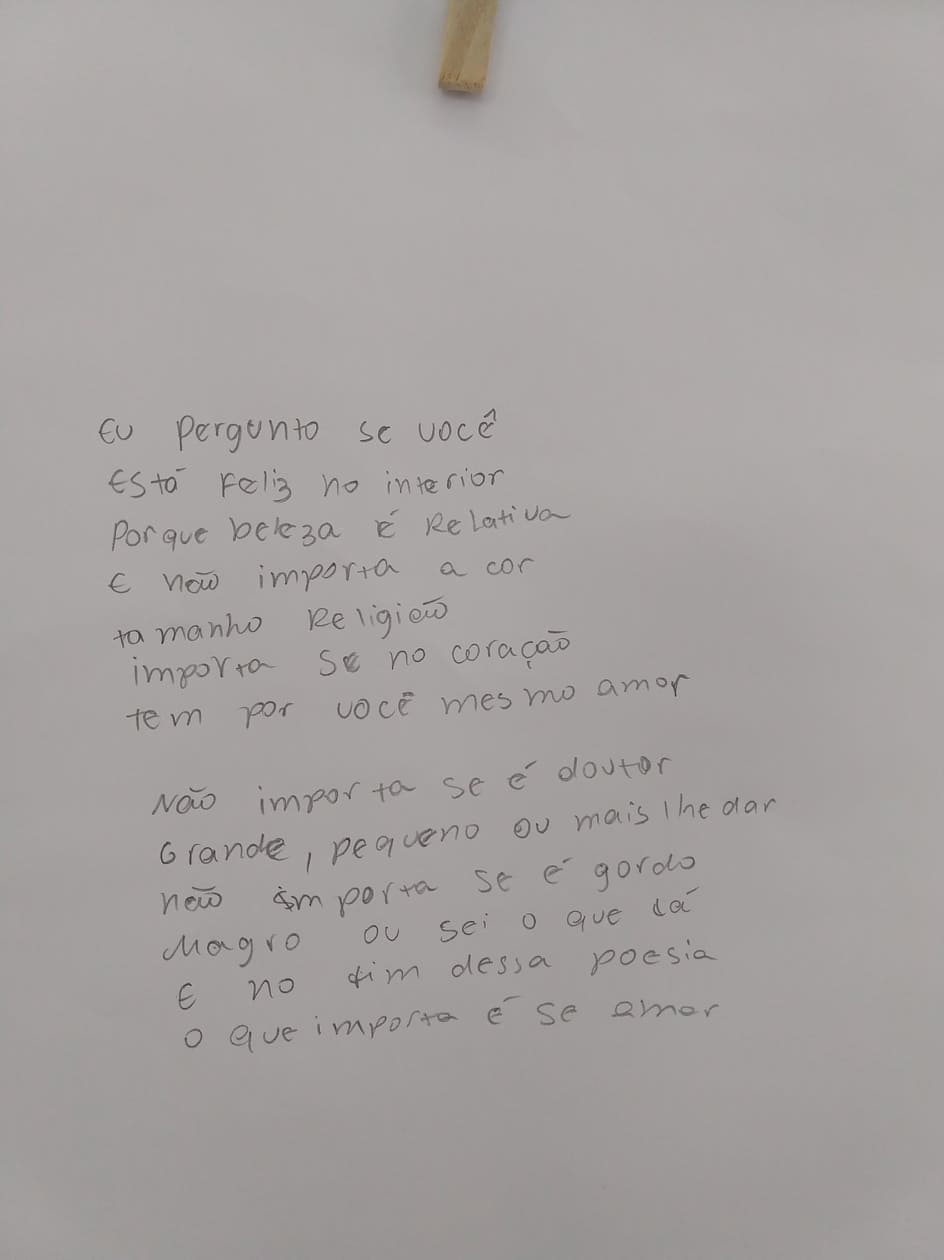 Eu pergunto se você
Está Feliz no interior
Porque beleza é Relativa
E não importa a cor
tamanho Religião
importa se no coração
tem por você mesmo amor
Não importa se é doutor
Grande, pequeno ou mais lhe dar
não importa se é gordo
Magro ou sei o que lá
E no fim dessa poesia
O que importa é se amar